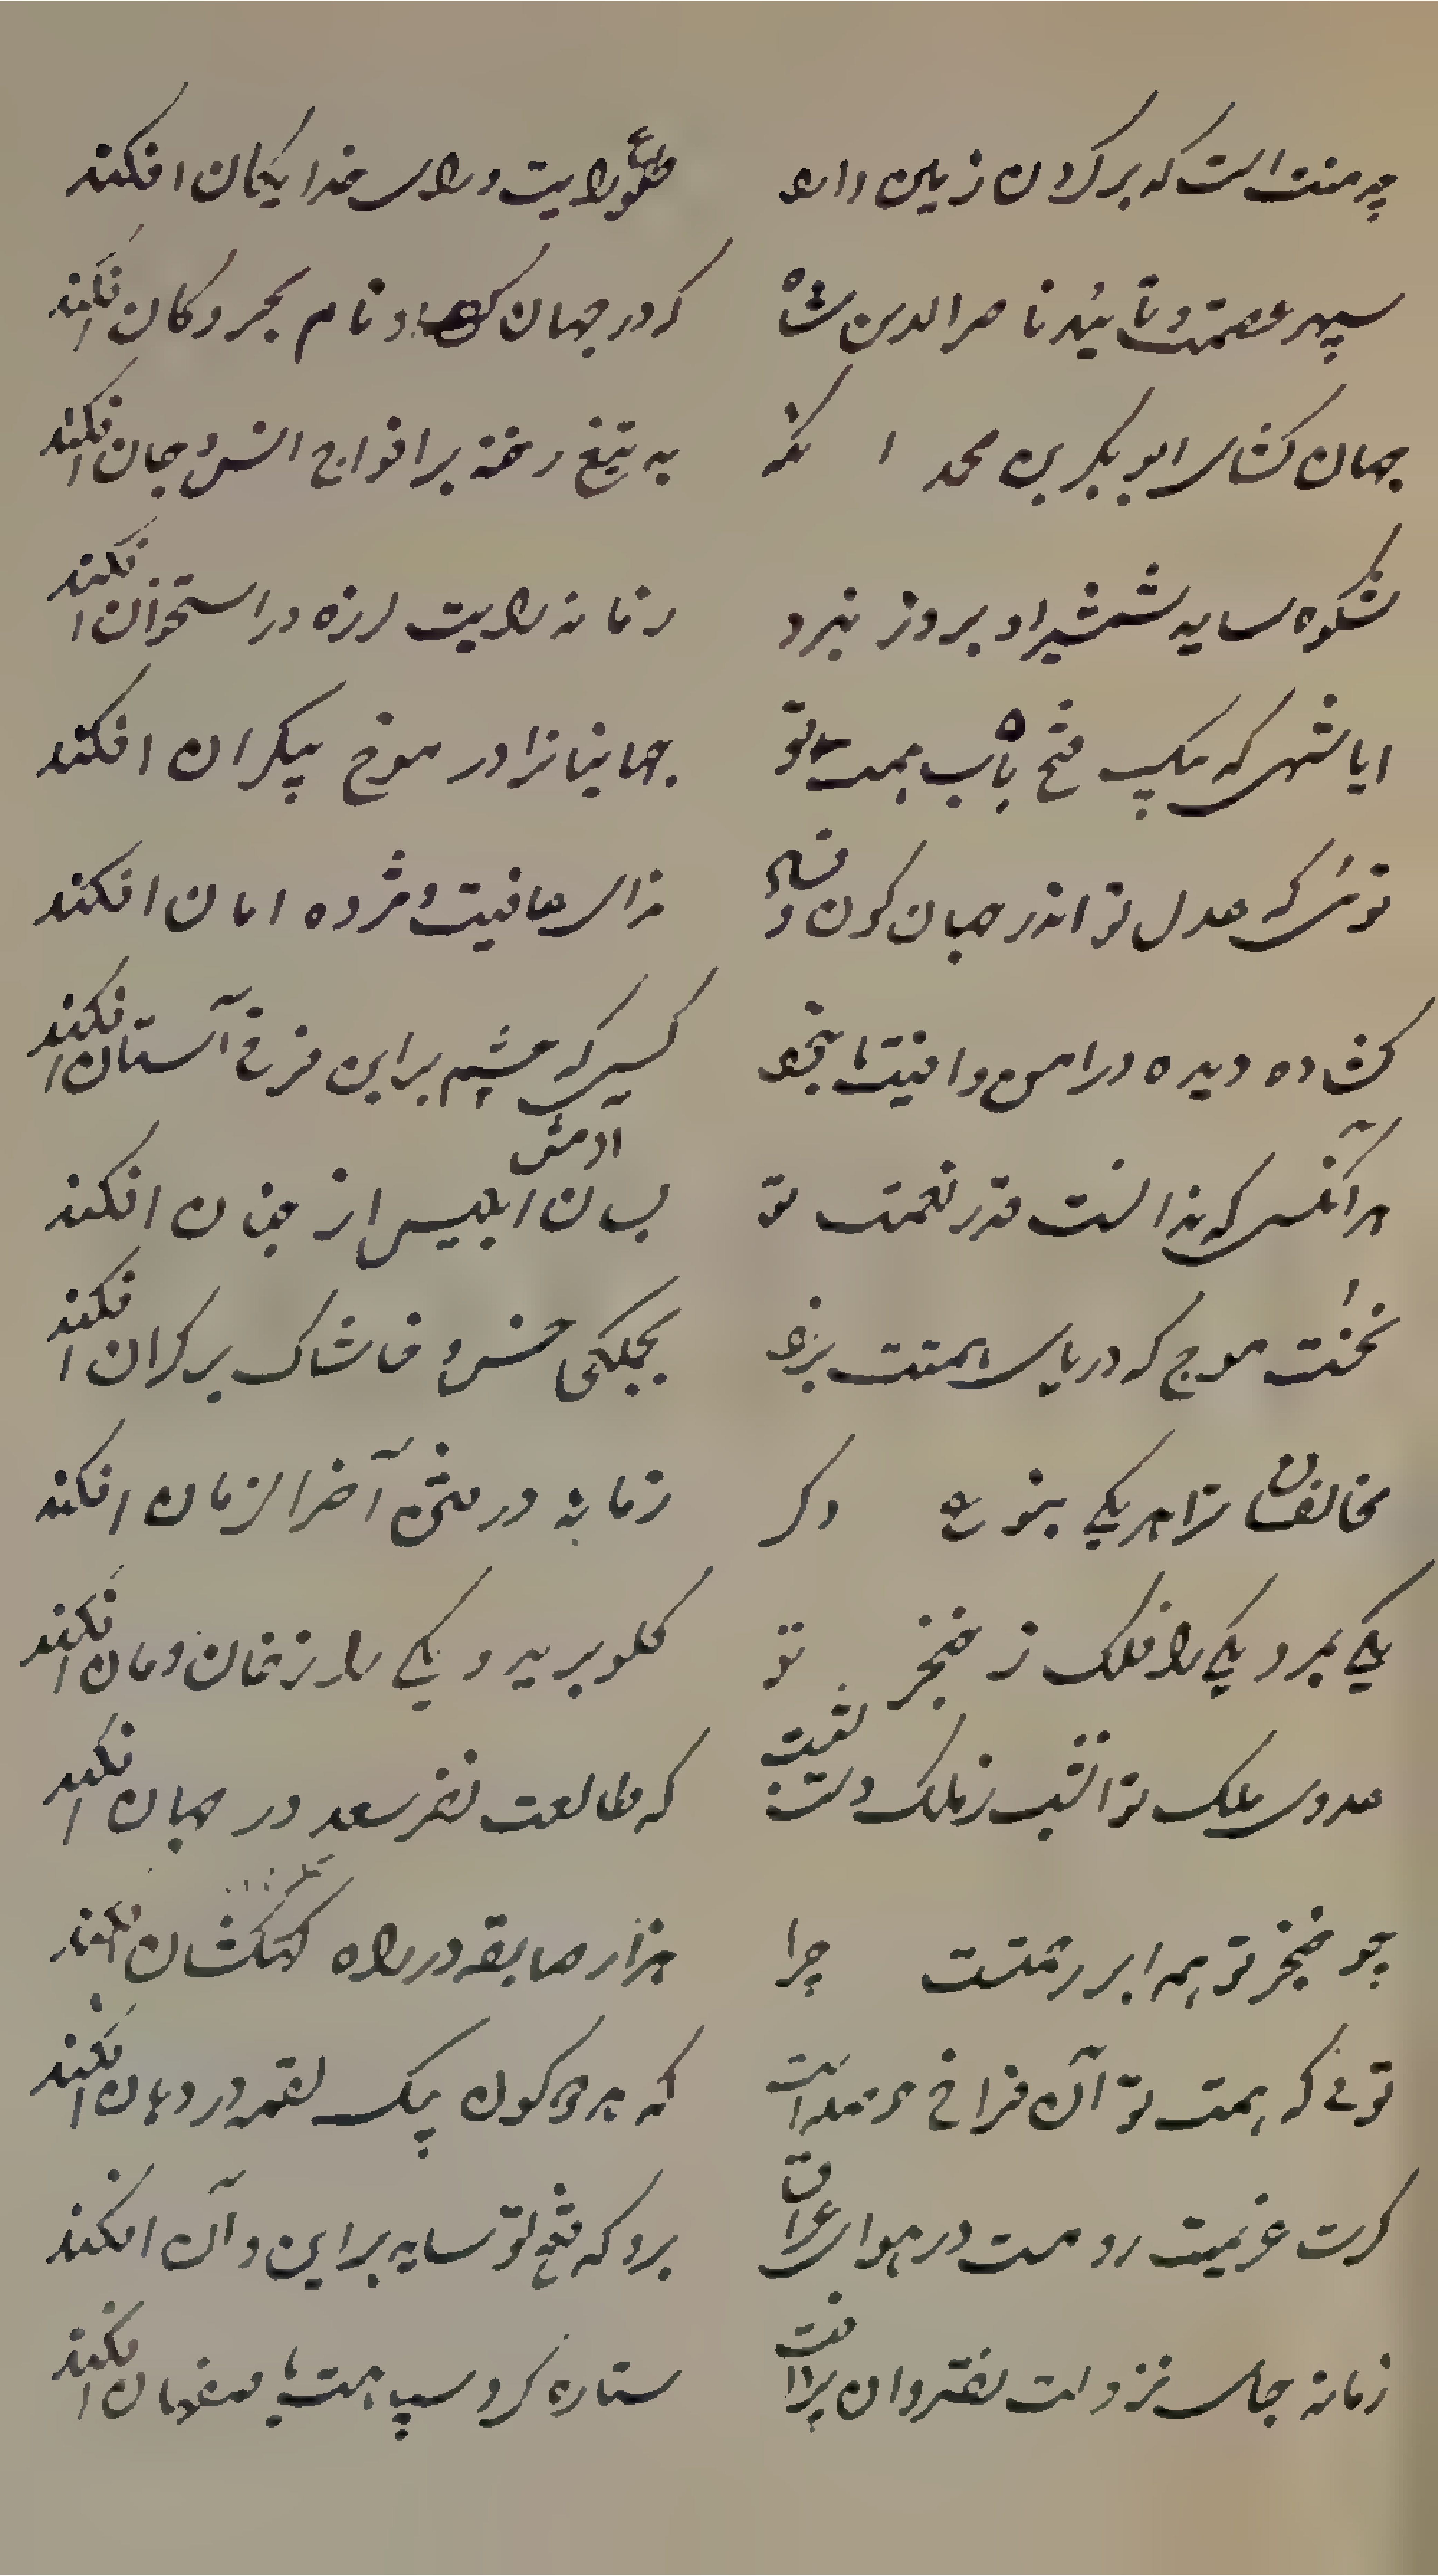 چه منت است که بر کردن زمین دارد طلوع رایت و رای خدایکان افکند
سپهر عصمت و تائید ناصرالدین شاه که در جهان کف او نام بحر و کان افکند
جهان کشای ابوبکر بن محمد انکه به تیغ رخنه بر افواج انس و جان افکند
شکوه سایه شمشیر او بروز نبرد زمانه رابیت لرزه در استخوان افکند
ایا شهی که یک فتح باب همت تو جهانیانرا در موج بیکران افکند
توئی که عدل تو اندر جهان کون و فساد ندای عافیت و مژده امان افکند
کشاده دیده در امن وا فیتها بخود کسی که چشم براین فرخ آستان افکند
هر آنکس که ندانست قدر نعمت تو بسان ابلیس آدمش از جنان افکند
نخست موج که دریای همتت بزد بجملکی خس و خاشاک بر کران افکند
مخالفان ترا هر یکی بنوع دکر زمانه در محن آخرالزمان افکند
یکی بمرد و یکی را فلک ز خنجر تو کلو برید و یکی را ز خان و مان افکند
عدوی ملک تو انشب ز ملک دست بشست که طالعت نظر سعد در جهان افکند
چو خنجر تو همه ابر رحمتست چرا هزار صاعقه در راه کهکشان افکند
توئی که همت تو آن فراخ حوصله است که هر دو کون بیک لقمه در دهان افکند
کرت عزیمت رومست در هوای عراق برو که فتح تو سایه بر این و آن افکند
زمانه جای نزولت بقیروان پرداخت ستاره کرد سپاهت باصفهان افکند